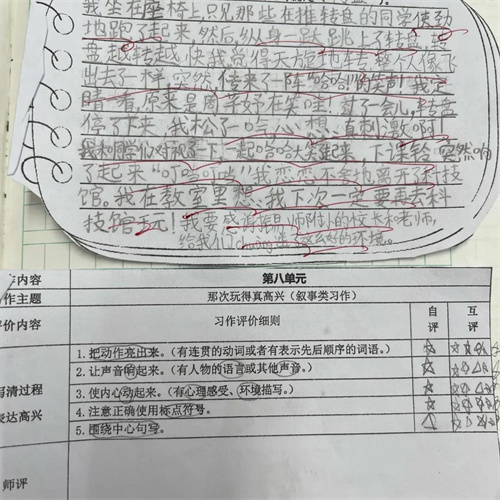 我坐在座椅上,只见那些在推转盘的同学使劲
地跑了起来,然后纵身一跃跳上了转盘,转
盘越转越快,我觉得天旋地转,整个人像飞
出去了一样,突然,传来了一阵“哈哈”的笑声!我定
睛一看,原来是周芊妤在笑哇!过了会儿,转盘
停了下来,我松了一口气,心想:真刺激啊!
我和同学们对视了一下,一起哈哈大笑起来,下课铃突然响
了起来“叮铃叮咚”我恋恋不舍地离开了科技
馆。我在教室里想:我下次一定要再去科
技馆玩!我要感谢 师附小的校长和老师,
给我们 这么好的环境。
作内容 第八单元
作主题 那次玩得真高兴(叙事类习作)
评价内容 习作评价细则 自评 互评
写清过程
表达高兴
1.把动作亮出来。(有连贯的动词或者有表示先后顺序的词语。)
2.让声音响起来。(有人物的语言或其他声音。)
3.使内心动起来。(有心理感受、环境描写。)
4.注意正确使用标点符号。
5.围绕中心句写。
师评